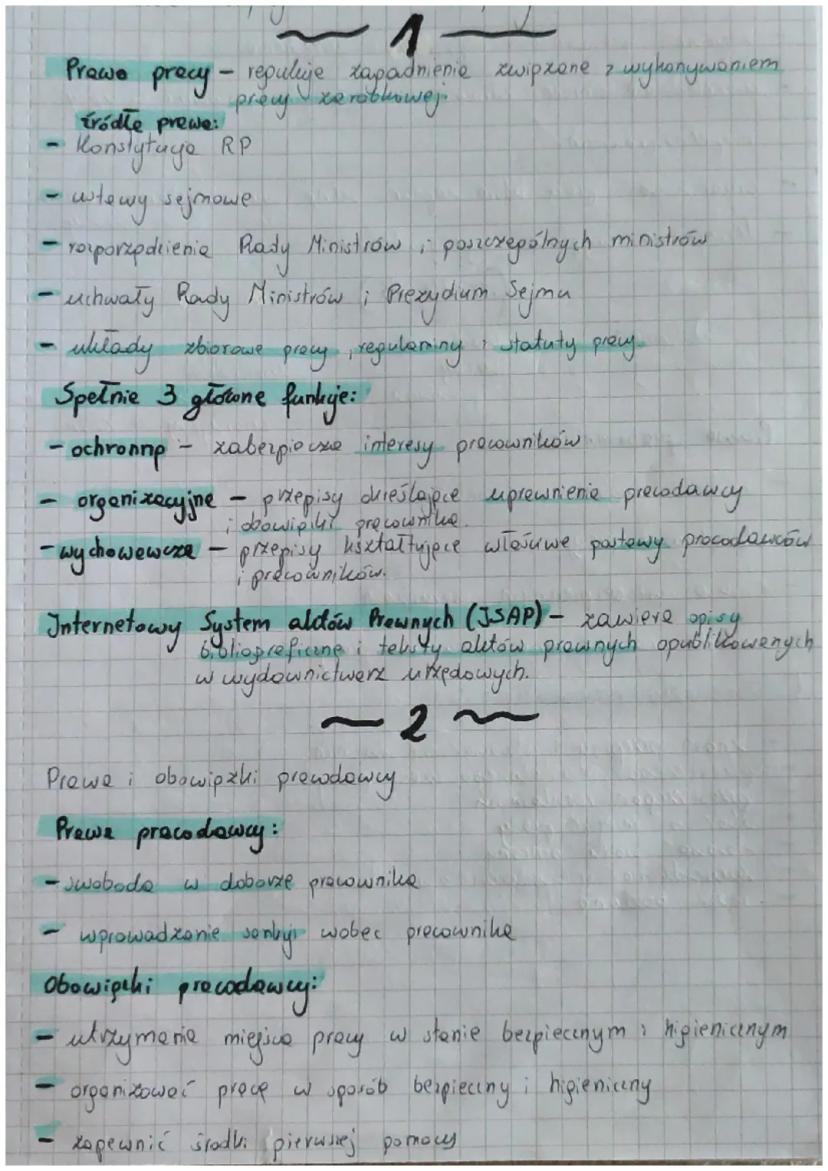 1
Prawo pracy – reguluje zagadnienia związane z wykonywaniem
pracy zarobkowej.
źródła prawa:
- Konstytucja RP
- ustawy sejmowe
- rozporządzenia Rady Ministrów i poszczególnych ministrów
- uchwały Rady Ministrów i Prezydium Sejmu
- układy zbiorowe pracy, regulaminy i statuty pracy
Spełnia 3 główne funkcje:
- ochronną – zabezpiecza interesy pracowników
- organizacyjne – przepisy określające uprawnienia pracodawcy
i obowiązki pracownika.
- wychowawcza – przepisy kształtujące właściwe postawy pracodawców
i pracowników.
Internetowy System aktów Prawnych (ISAP) – zawiera opisy
bibliograficzne i teksty aktów prawnych opublikowanych
w wydawnictwach urzędowych.
~ 2 ~
Prawa i obowiązki pracodawcy
Prawa pracodawcy:
- swoboda w doborze pracownika
- wprowadzanie sankcji wobec pracownika
Obowiązki pracodawcy:
- utrzymania miejsca pracy w stanie bezpiecznym i higienicznym
- organizować pracę w sposób bezpieczny i higieniczny
- zapewnić środki pierwszej pomocy